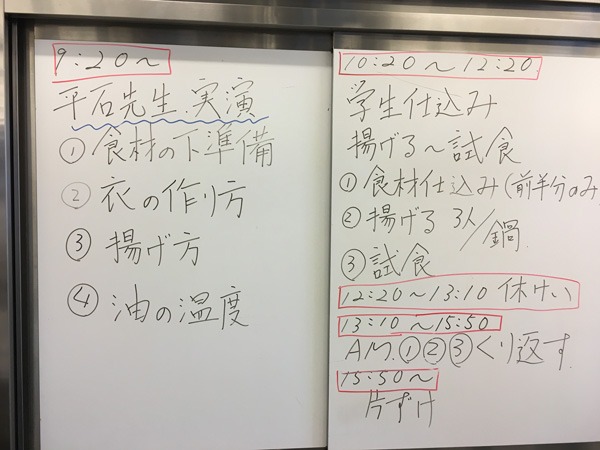 9:20〜
平石先生.実演
①食材の下準備
②衣の作り方
③揚げ方
④油の温度
10:20〜12:20
学生仕込み
揚げる〜試食
①食材仕込み(前半分のみ
②揚げる 3人/鍋
③試食
12:20〜13:10 休けい
13:10〜15:50
AM.①②③くり返す
15:50〜
片ずけ